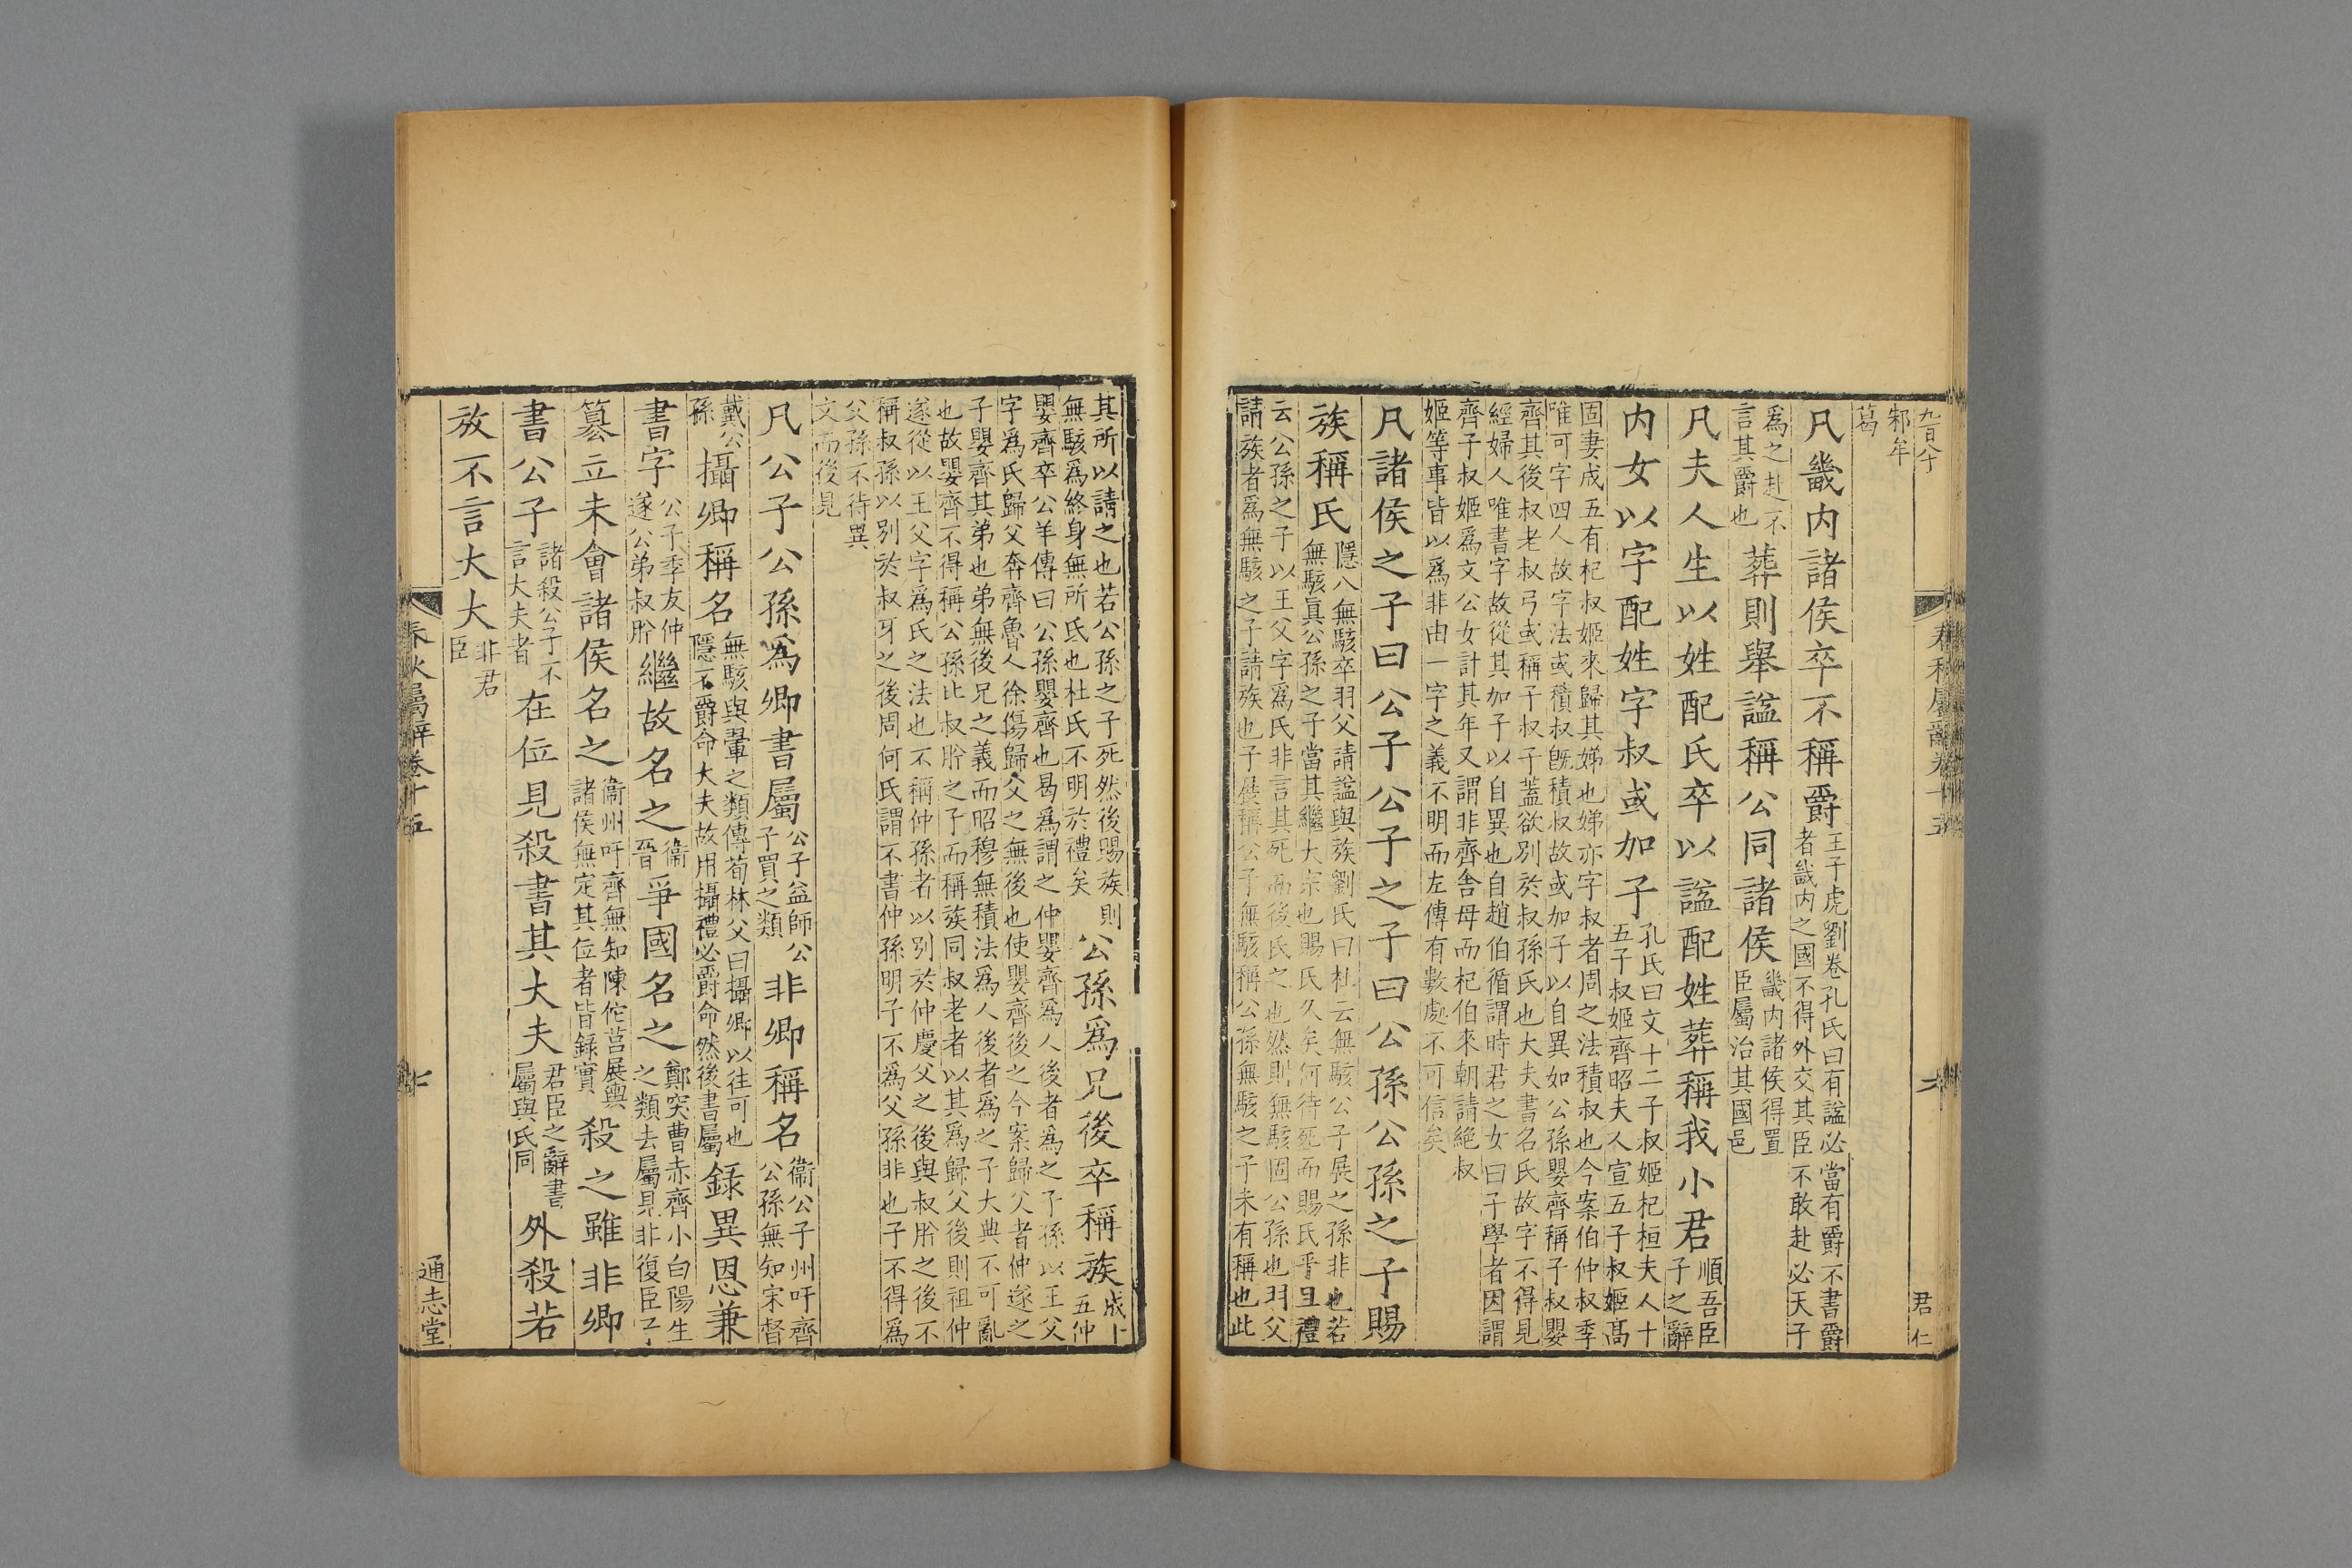 九百六十
春秋屬辭卷十五
二
君仁
邾牟
葛
凡畿内諸侯卒不稱爵王子虎劉卷孔氏曰有諡必當有爵不書爵
者畿内之國不得外交其臣不敢赴必天子
爲之赴不
言其爵也葬則舉諡稱公同諸侯畿内諸侯得置
臣屬治其國邑
凡夫人生以姓配氏卒以諡配姓葬稱我小君順吾臣
子之辭
内女以字配姓字叔或加子孔氏曰文十二子叔姬杞桓夫人十
五子叔姬齊昭夫人宣五子叔姬高
固妻成五有杞叔姬來歸其娣也娣亦字叔者周之法積叔也今案伯仲叔季
唯可字四人故字法或積叔旣積叔故或加子以自異如公孫嬰齊稱子叔嬰
齊其後叔老叔弓或稱子叔子蓋欲別於叔孫氏也大夫書名氏故字不得見
經婦人唯書字故從其加子以自異也自趙伯循謂時君之女曰子學者因謂
齊子叔姬爲文公女計其年又謂非齊舎母而杞伯來朝請絶叔
姬等事皆以爲非由一字之義不明而左傳有數處不可信矣
凡諸侯之子曰公子公子之子曰公孫公孫之子賜
族稱氏隱八無駭卒羽父請諡與族劉氏曰杜云無駭公子展之孫非也若
無駭眞公孫之子當其繼大宗也賜氏久矣何待死而賜氏乎且禮
云公孫之子以王父字爲氏非言其死而後氏之也然則無駭固公孫也羽父
請族者爲無駭之子請族也子展稱公子無駭稱公孫無駭之子未有稱也此
其所以請之也若公孫之子死然後賜族則
無駭爲終身無所氏也杜氏不明於禮矣公孫爲兄後卒稱族成十
五仲
嬰齊卒公羊傳曰公孫嬰齊也曷爲謂之仲嬰齊爲人後者爲之子孫以王父
字爲氏歸父奔齊魯人徐傷歸父之無後也使嬰齊後之今案歸父者仲遂之
子嬰齊其弟也弟無後兄之義而昭穆無積法爲人後者爲之子大典不可亂
也故嬰齊不得稱公孫比叔肸之子而稱族同叔老者以其爲歸父後則祖仲
遂從以王父字爲氏之法也不稱仲孫者以別於仲慶父之後與叔肸之後不
稱叔孫以別於叔牙之後周何氏謂不書仲孫明子不爲父孫非也子不得爲
父孫不待異
文而後見
凡公子公孫爲卿書屬公子益師公
子買之類非卿稱名衞公子州吁齊
公孫無知宋督
戴公
孫攝卿稱名無駭與翬之類傳荀林父曰攝卿以往可也
隱不爵命大夫故用攝禮必爵命然後書屬録異恩兼
書字公子季友仲
遂公弟叔肸繼故名之衞
晉爭國名之鄭突曹赤齊小白陽生
之類去屬見非復臣子
簒立未會諸侯名之衞州吁齊無知陳佗莒展輿
諸侯無定其位者皆録實殺之雖非卿
書公子諸殺公子不
言大夫者在位見殺書其大夫君臣之辭書
屬與氏同外殺若
放不言大夫非君
臣
春秋屬辭卷十五
通志堂